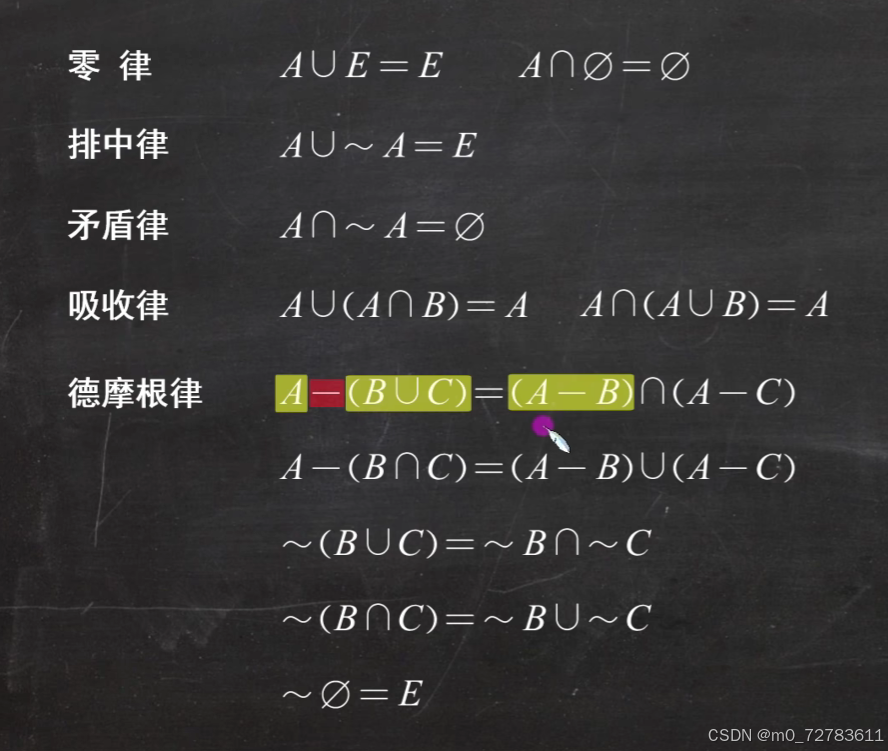 零 律 A∪E=E A∩∅=∅
排中律 A∪~A=E
矛盾律 A∩~A=∅
吸收律 A∪(A∩B)=A A∩(A∪B)=A
德摩根律 A−(B∪C)=(A−B)∩(A−C)
A−(B∩C)=(A−B)∪(A−C)
~(B∪C)=~B∩~C
~(B∩C)=~B∪~C
~∅=E
CSDN @m0_72783611